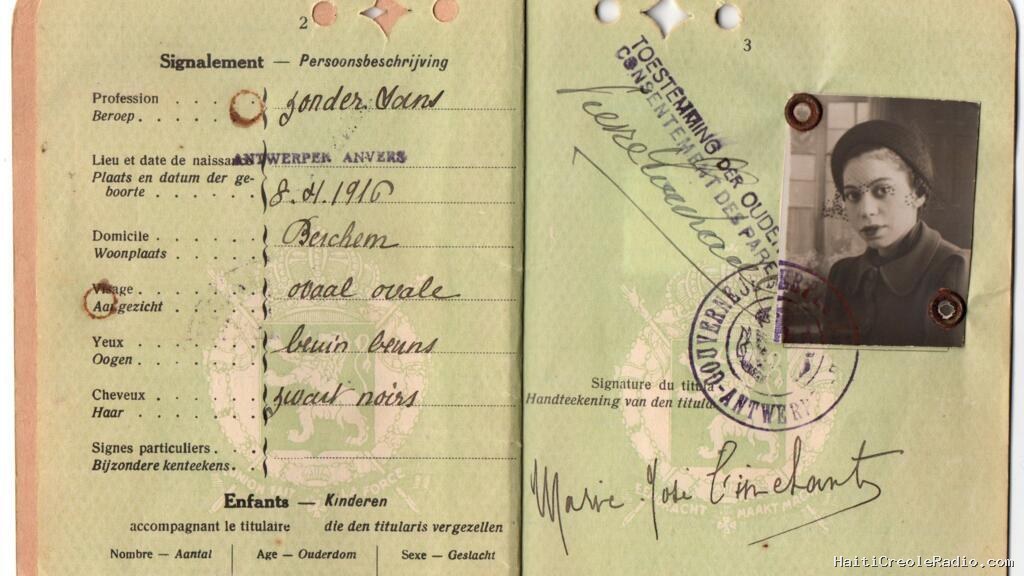 2
Signalement — Persoonsbeschrijving
Profession
Beroep
zonder. Sans
Lieu et date de naissan
ANTWERPEN ANVERS
Plaats en datum der ge-
boorte
8.4.1916
Domicile
Woonplaats
Berchem
Visage
Aangezicht
ovaal ovale
Yeux
Oogen
bruin bruns
Cheveux
Haar
zwart noirs
Signes particuliers
Bijzondere kenteekens
Enfants — Kinderen
accompagnant le titulaire die den titularis vergezellen
Nombre — Aantal
Age — Ouderdom
Sexe — Geslacht
3
TOESTEMMING DER OUDER
CONSENTEMENT DES PARE
GOUVERNEU
ANTWERP
Signature du titula
Handteekening van den titula
Marie José Tinchant
MAAKT
FORCE
HaitiCreoleRadio.com